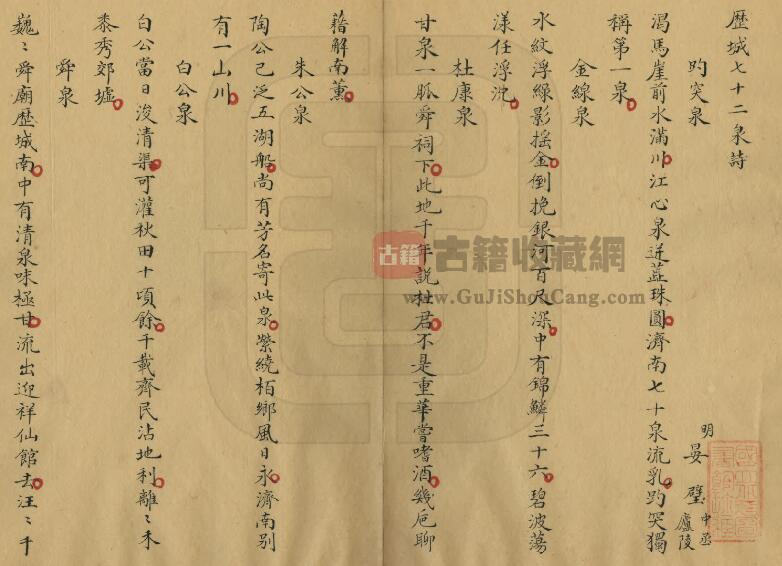 歷城七十二泉詩
趵突泉
明 晏璧 中丞
廬陵
渴馬崖前水滿川江心泉迸蕋珠圓濟南七十泉流乳趵突獨
稱第一泉
金線泉
水紋浮綠影搖金倒挽銀河百尺深中有錦鱗三十六碧波蕩
漾任浮沉
杜康泉
甘泉一脈舜祠下此地千年説杜君不是重華嘗嗜酒幾巵聊
藉解南薰
朱公泉
陶公已泛五湖船尚有芳名寄此泉縈繞栢鄉風日永濟南別
有一山川
白公泉
白公當日浚清渠可灌秋田十頃餘千載齊民沾地利離〻禾
黍秀郊墟
舜泉
巍〻舜廟歷城南中有清泉味極甘流出迎祥仙館去汪〻千
古籍
古籍收藏網
www.GuJiShouCang.com